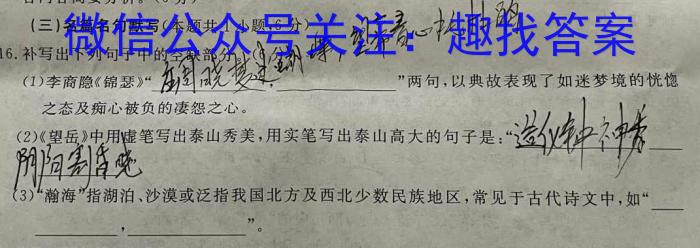 (三)名篇名句默写(本题共1小题,6分)
微信公众号关注：趣找答案
16.补写出下列句子中的空缺部分。(6分)
(1)李商隐《锦瑟》“庄周晓梦迷蝴蝶，望帝春心托杜鹃”两句,以典故表现了如迷梦境的恍惚
之态及痴心被负的凄怨之心。
(2)《望岳》中用虚笔写出泰山秀美,用实笔写出泰山高大的句子是:“造化钟神秀
阴阳割昏晓
(3)“瀚海”指湖泊、沙漠或泛指我国北方及西北少数民族地区,常见于古代诗文中,如“
,”。